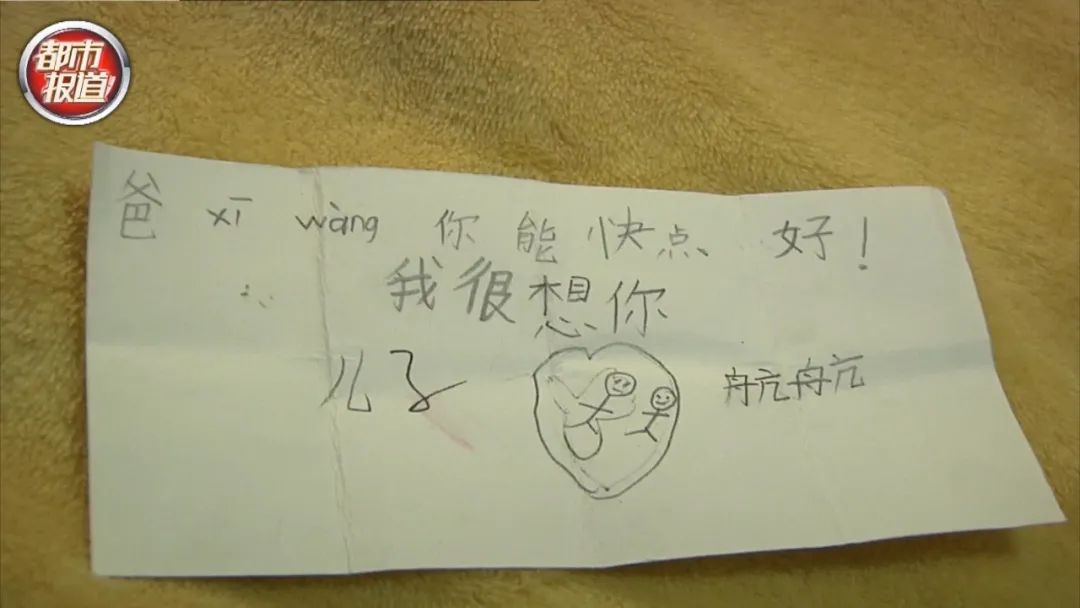 都市
报道
爸 xī wàng 你能快点好！
我很想你
儿子 航航